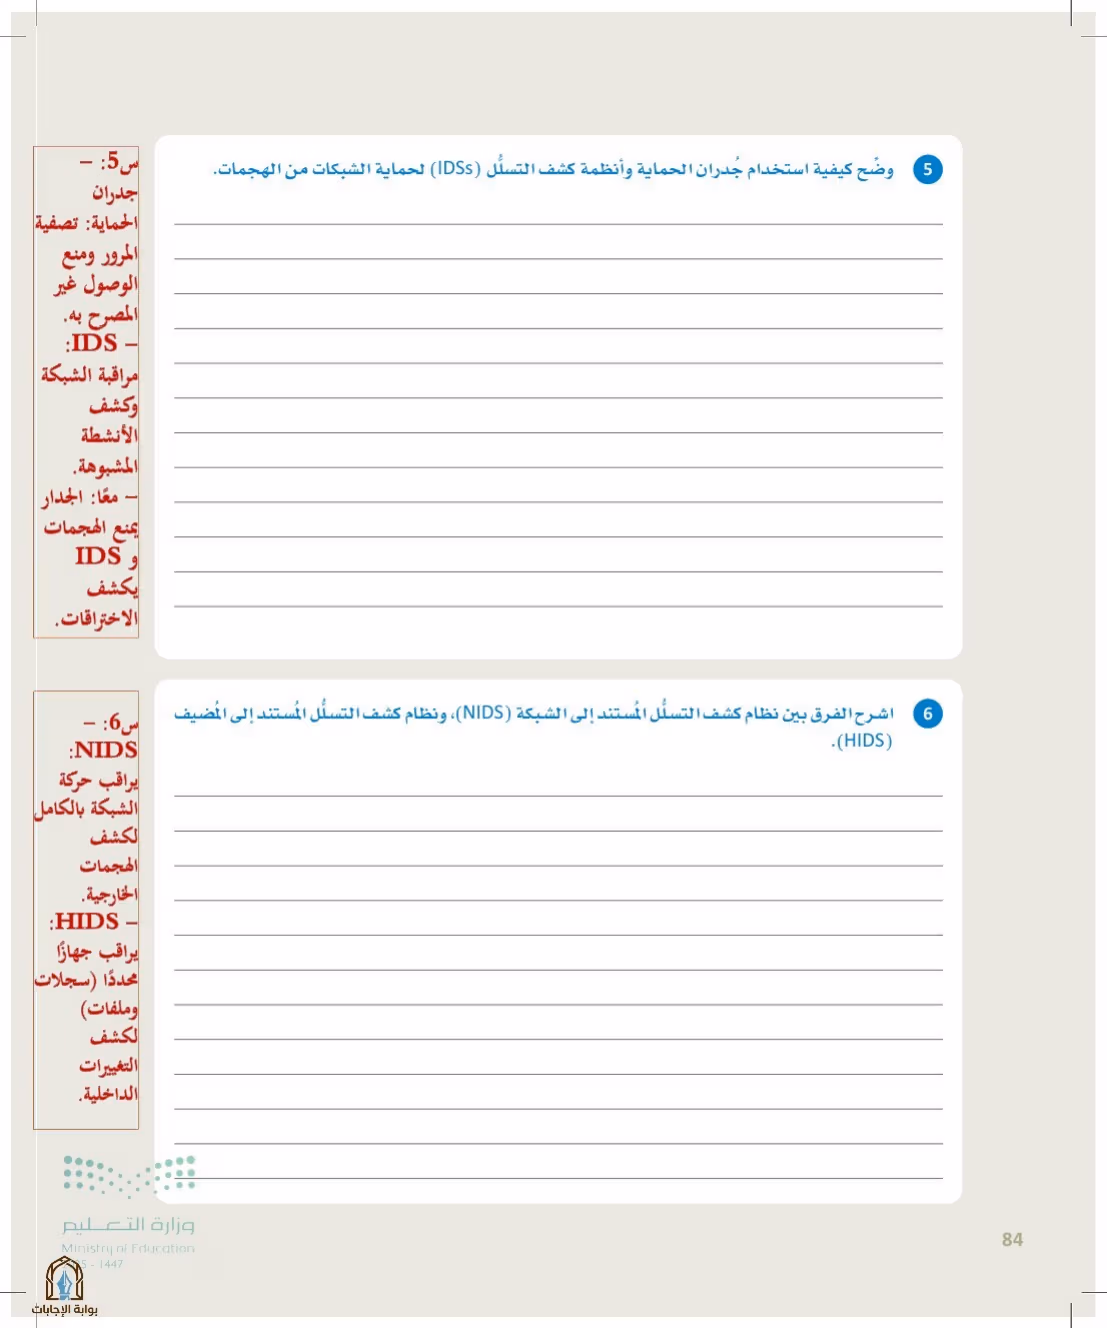 5 وضِّح كيفية استخدام جُدران الحماية وأنظمة كشف التسلُّل (IDSs) لحماية الشبكات من الهجمات.
س5: –
جدران
الحماية: تصفية
المرور ومنع
الوصول غير
المصرح به.
– IDS:
مراقبة الشبكة
وكشف
الأنشطة
المشبوهة.
– معًا: الجدار
يمنع الهجمات
و IDS
يكشف
الاختراقات.
6 اشرح الفرق بين نظام كشف التسلُّل المُستند إلى الشبكة (NIDS)، ونظام كشف التسلُّل المُستند إلى المُضيف
(HIDS).
س6: –
NIDS:
يراقب حركة
الشبكة بالكامل
لكشف
الهجمات
الخارجية.
– HIDS:
يراقب جهازًا
محددًا (سجلات
وملفات)
لكشف
التغييرات
الداخلية.
وزارة التعـــليم
Ministry of Education
5 - 1447
84
بوابة الإجابات